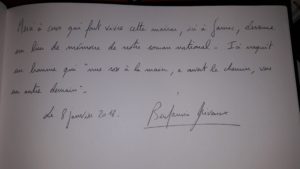 Merci à ceux qui font vivre cette maison, ici à Jarnac, devenue
un lieu de mémoire de notre roman national. Ici naquit
un homme qui "une rose à la main, a ouvert le chemin, vers
un autre demain".
Le 8 janvier 2018.
Benjamin Griveaux